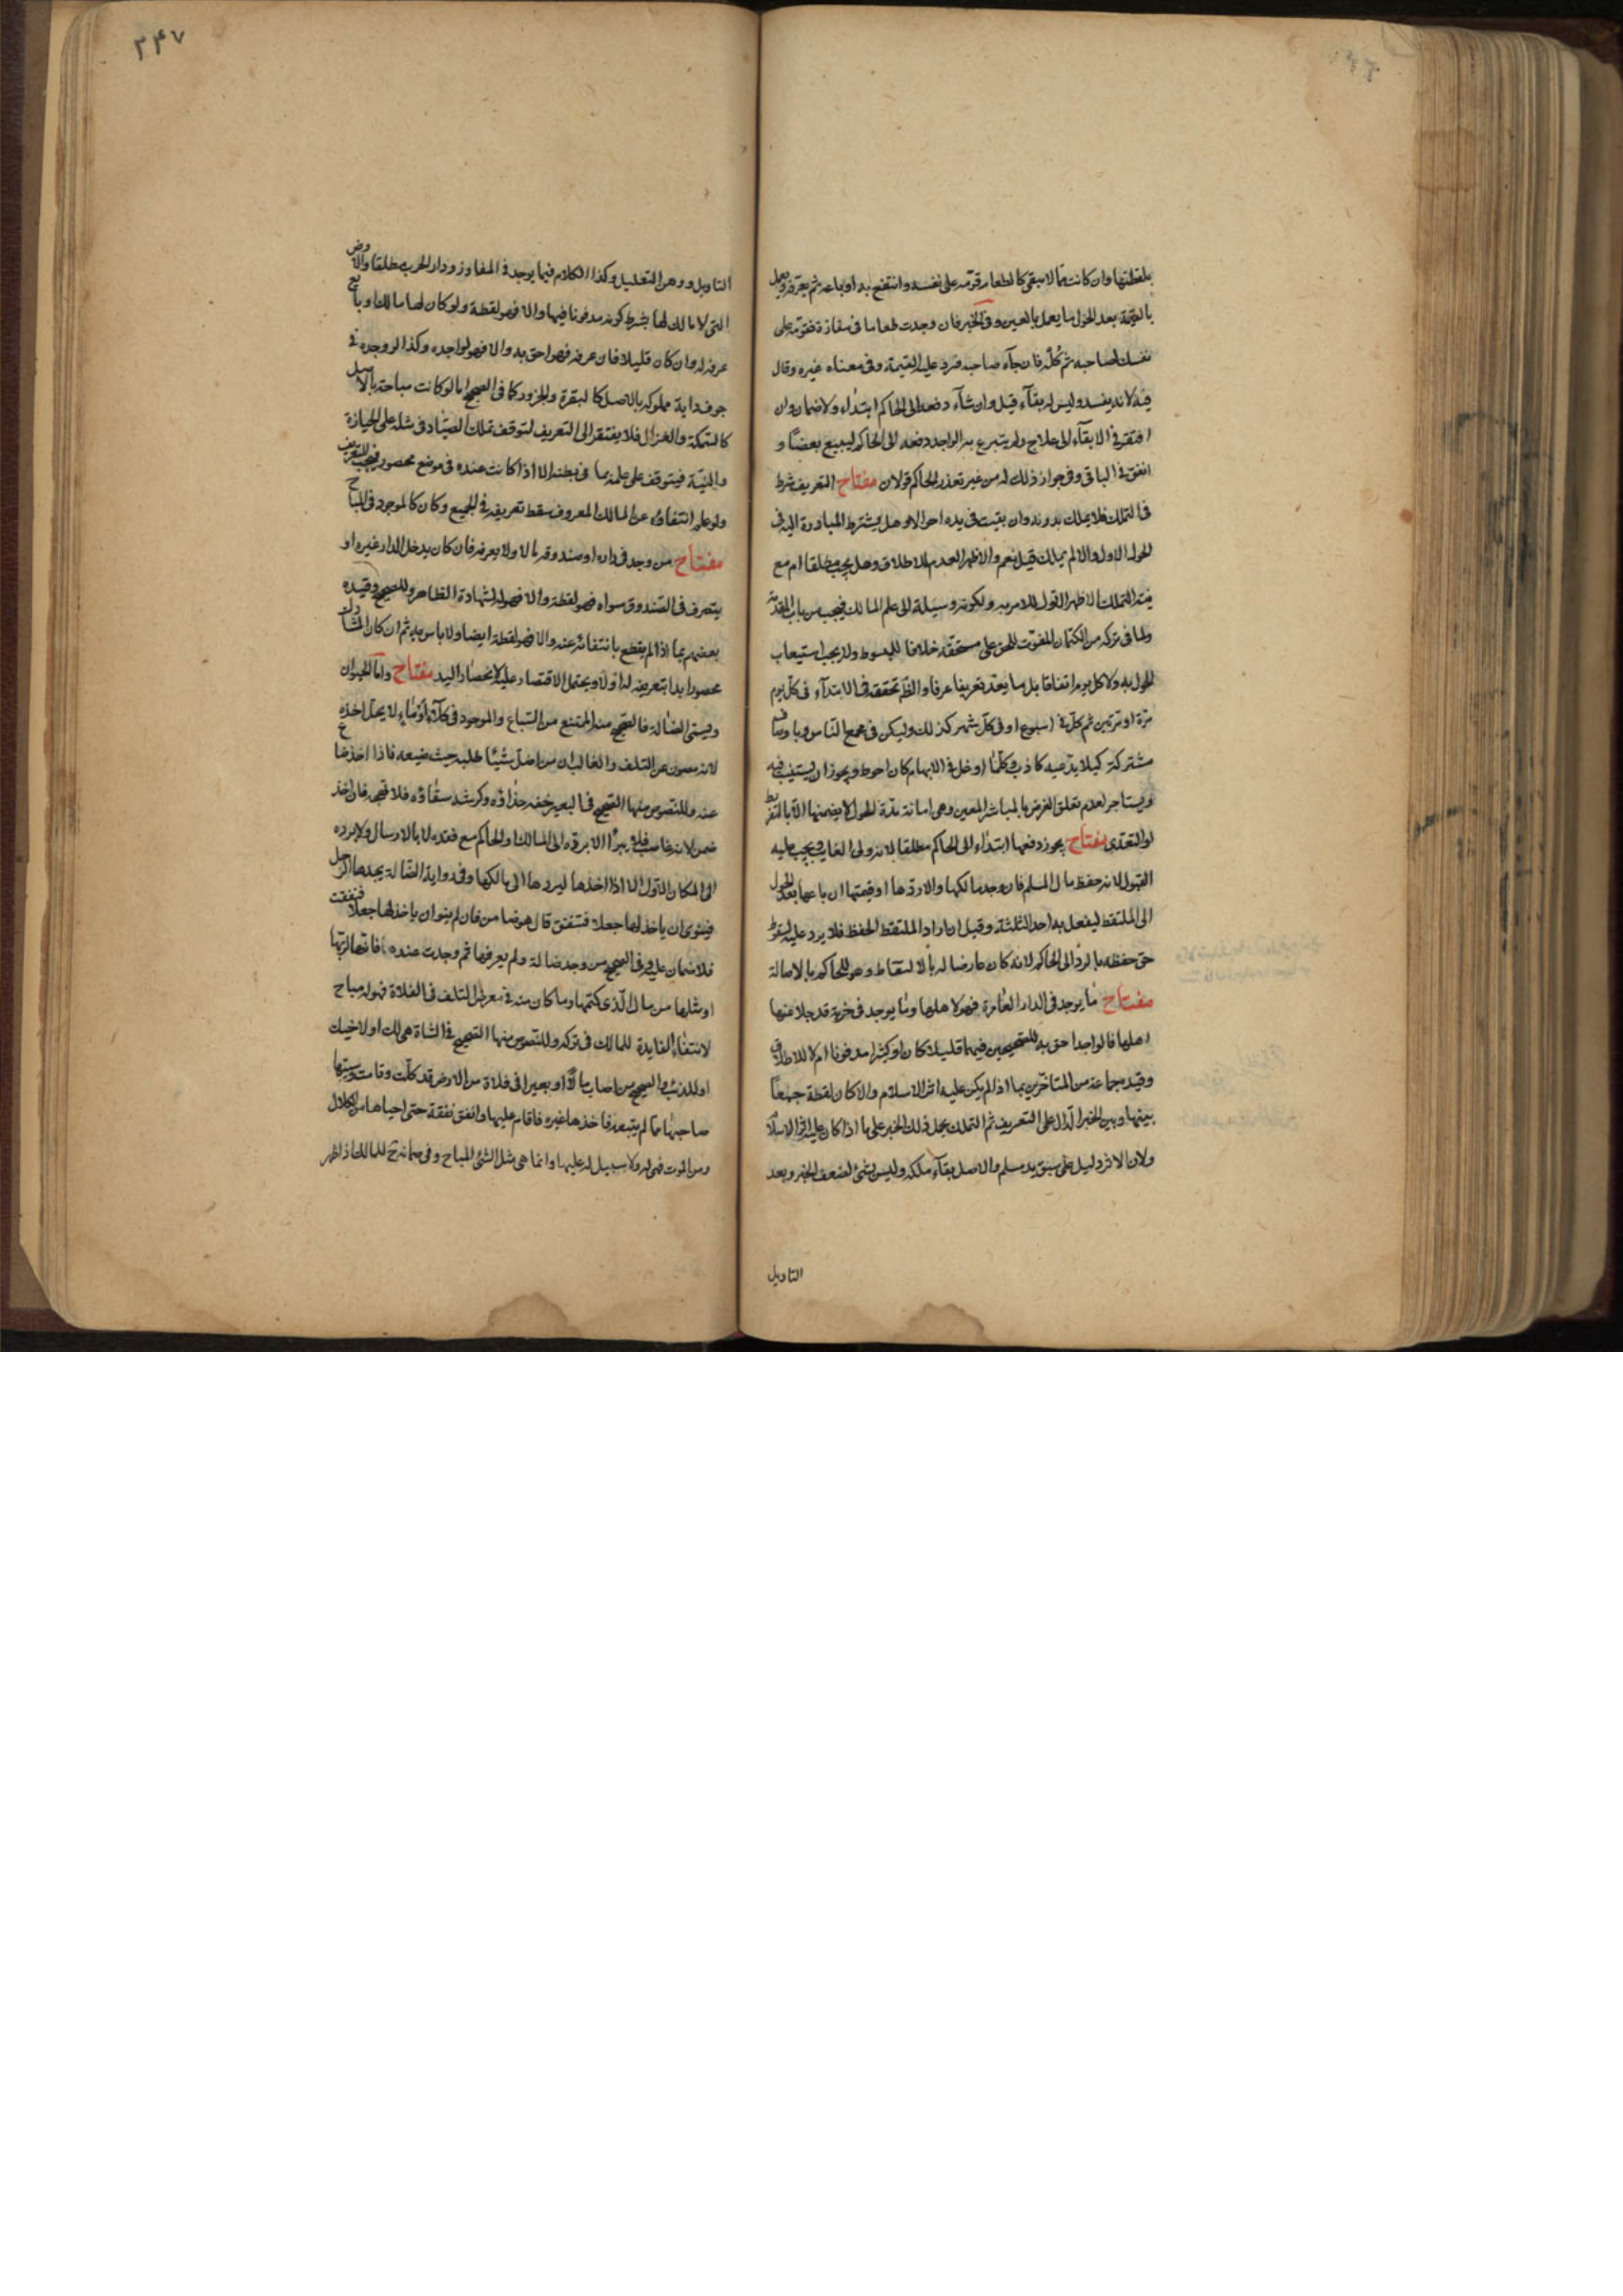 بلقطتها وان كانت مما لا يبقى كالطعام قومه على نفسه وانتفع به او باعه ثم يعرفه ويعمل
بالقيمة بعد الحول ما يعمل بالعين وفى الخبر فان وجدت طعاما فى مفازة فقومه على
نفسك لصاحبه ثم كله فان جآء صاحبه فرد عليه القيمة وفى معناه غيره وقال
فيه لانه يفسد وليس له بقآء قيل وان شآء دفعه الى الحاكم ابتدآء ولا ضمان وان
افتقر فى الابقآء الى علاج ولم يتبرع به الواجد دفعه الى الحاكم ليبيع بعضا و
انفق فى الباقى وفى جواز ذلك له من غير تعذر الحاكم قولان مفتاح التعريف شرط
فى التملك فلا يملك بدونه وان بقيت فى يده احوالا وهل يشترط المبادرة اليه فى
الحول الاول والا لم يملك قيل نعم والاظهر العدم للاطلاق وهل يجب مطلقا ام مع
نية التملك الاظهر الاول للامر به ولكونه وسيلة الى علم المالك فيجب من باب المقدمة
ولما فى تركه من الكتمان المفوت للحق على مستحقه خلافا للمبسوط ولا يجب استيعاب
الحول به ولا كل يوم اتفاقا بل ما يعد تعريفا عرفا والظم تحققه فى الابتدآء فى كل يوم
مرة او مرتين ثم كل فى اسبوع او فى كل شهر كذلك وليكن فى مجمع الناس وباوصاف
مشتركة كيلا يدعيه كاذب وكلما اوغل فى الابهام كان احوط ويجوز ان يستنيب فيه
ويستاجر لعدم تعلق الغرض بالمباشر المعين وهى امانة مدة الحول لا يضمنها الا بالتفريط
او التعدى مفتاح يجوز دفعها ابتدآء الى الحاكم مطلقا لانه ولى الغايب ويجب عليه
القبول لانه حفظ مال المسلم فان وجد مالكها والا ردها او قيمتها ان باعها بعد الحول
الى الملتقط ليفعل به احد الثلثة وقيل ان اراد الملتقط الحفظ فلا يرد عليه لسقوط
حق حفظه بالرد الى الحاكم لانه كان عارضا له بالالتقاط وهو للحاكم بالاصالة
مفتاح ما يوجد فى الدار العامرة فهو لاهلها وما يوجد فى خربة قد جلا عنها
اهلها فالواجد احق به للصحيحين فيهما قليلا كان او كثيرا مدفونا ام لا للاطلاق
وقيد جماعة من المتاخرين بما اذا لم يكن عليه اثر الاسلام والا كان لقطة جمعا
بينهما وبين الخبر الدال على التعريف ثم التملك بحمل ذلك الخبر على ما اذا كان عليه اثر الاسلام
ولان الاثر دليل على سبق يد مسلم والاصل بقآء ملكه وليس بشئ لضعف الخبر وبعد
التاويل
٢٤٧
التاويل ووهن التعليل وكذا الكلام فيما يوجد فى المفاوز ودار الحرب مطلقا والارض
التى لا مالك لها بشرط كونه مدفونا فيها والا فهو لقطة ولو كان لها مالك او بايع
عرفه له وان كان قليلا فان عرفه فهو احق به والا فهو لواجده وكذا لو وجده فى
جوف دابة مملوكه بالاصل كالبقرة والجزور كما فى الصحيح اما لو كانت مباحة بالاصل
كالسمكة والغزال فلا يفتقر الى التعريف لتوقف تملك الصياد فى مثله على الحيازة
والنية فيتوقف على علمه بما فى بطنه الا اذا كانت عنده فى موضع محصور فيجب التعريف
ولو علم انتفاؤه عن المالك المعروف سقط تعريفه فى الجميع وكان كالموجود فى المباح
مفتاح من وجد فى داره او صندوقه مالا ولا يعرفه فان كان يدخل الدار غيره او
يتصرف فى الصندوق سواه فهو لقطة والا فهو له لشهادة الظاهر وللصحيح وقيده
بعضهم بما اذا لم يقطع بانتفائه عنه والا فهو لقطة ايضا ولا باس به ثم ان كان المشارك
محصورا بدا بتعريفه له اولا ويحتمل الاقتصار عليه لانحصار اليد مفتاح واما الحيوان
ويسمى الضالة فالصحيح منه الممتنع من السباع والموجود فى كلأ او مآء لا يحل اخذه
لانه مصون عن التلف والغالب ان من اضل شيئا طلبه حيث ضيعه فاذا اخذ ضاع
عنه وللنصوص منها الصحيح فى البعير خفه حذاؤه وكرشه سقاؤه فلا تهجه فان اخذ
ضمن لانه غاصب فلا يبرأ الا برده الى المالك او الحاكم مع فقده لا بالارسال ولا برده
الى المكان الاول الا اذا اخذها ليردها الى مالكها وفى رواية الضالة يجدها الرجل
فينوى ان ياخذ لها جعلا فتنفق قال هو ضامن فان لم ينو ان ياخذ لها جعلا فنفقت
فلا ضمان عليه وفى الصحيح من وجد ضالة ولم يعرفها ثم وجدت عنده فانها لربها
او مثلها من مال الذى كتمها وما كان منه فى معرض التلف فى الفلاة فهو له مباح
لانتفاء الفايدة للمالك فى تركه وللنصوص منها الصحيح فى الشاة هى لك او لاخيك
او للذئب والصحيح من اصاب مالا او بعيرا فى فلاة من الارض قد كلت وقامت وسيبها
صاحبها مما لم يتبعه فاخذها غيره فاقام عليها وانفق نفقة حتى احياها من الكلال
ومن الموت فهى له ولا سبيل له عليها وانما هى مثل الشئ المباح وفى ضمانه للمالك اذا ظهر